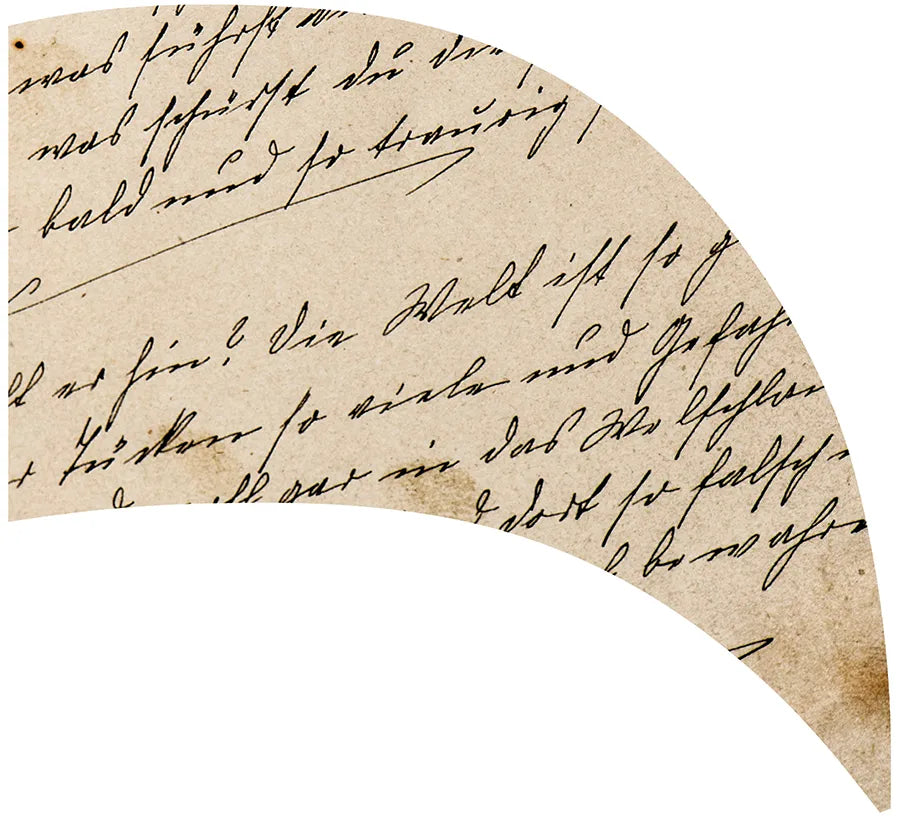 was führst
was schürst du die
bald und so traurig
er hin? Die Welt ist so g
Tücken so viele und Gefah
gar in das Welschlan
dort so falsch
bewahre